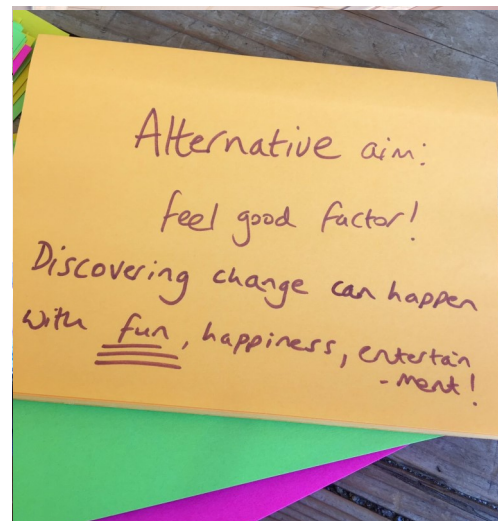 Alternative aim:
feel good factor!
Discovering change can happen
with fun, happiness, entertain
-ment!